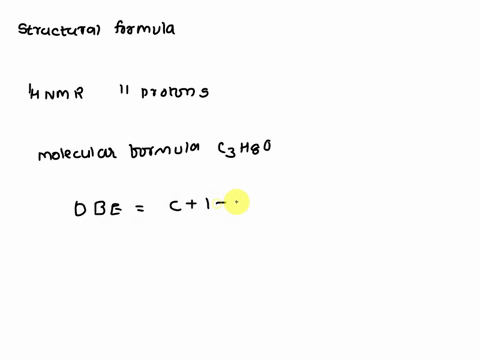 Structural formula
1H NMR 11 protons
molecular formula C3H8O
DBE = C+1-